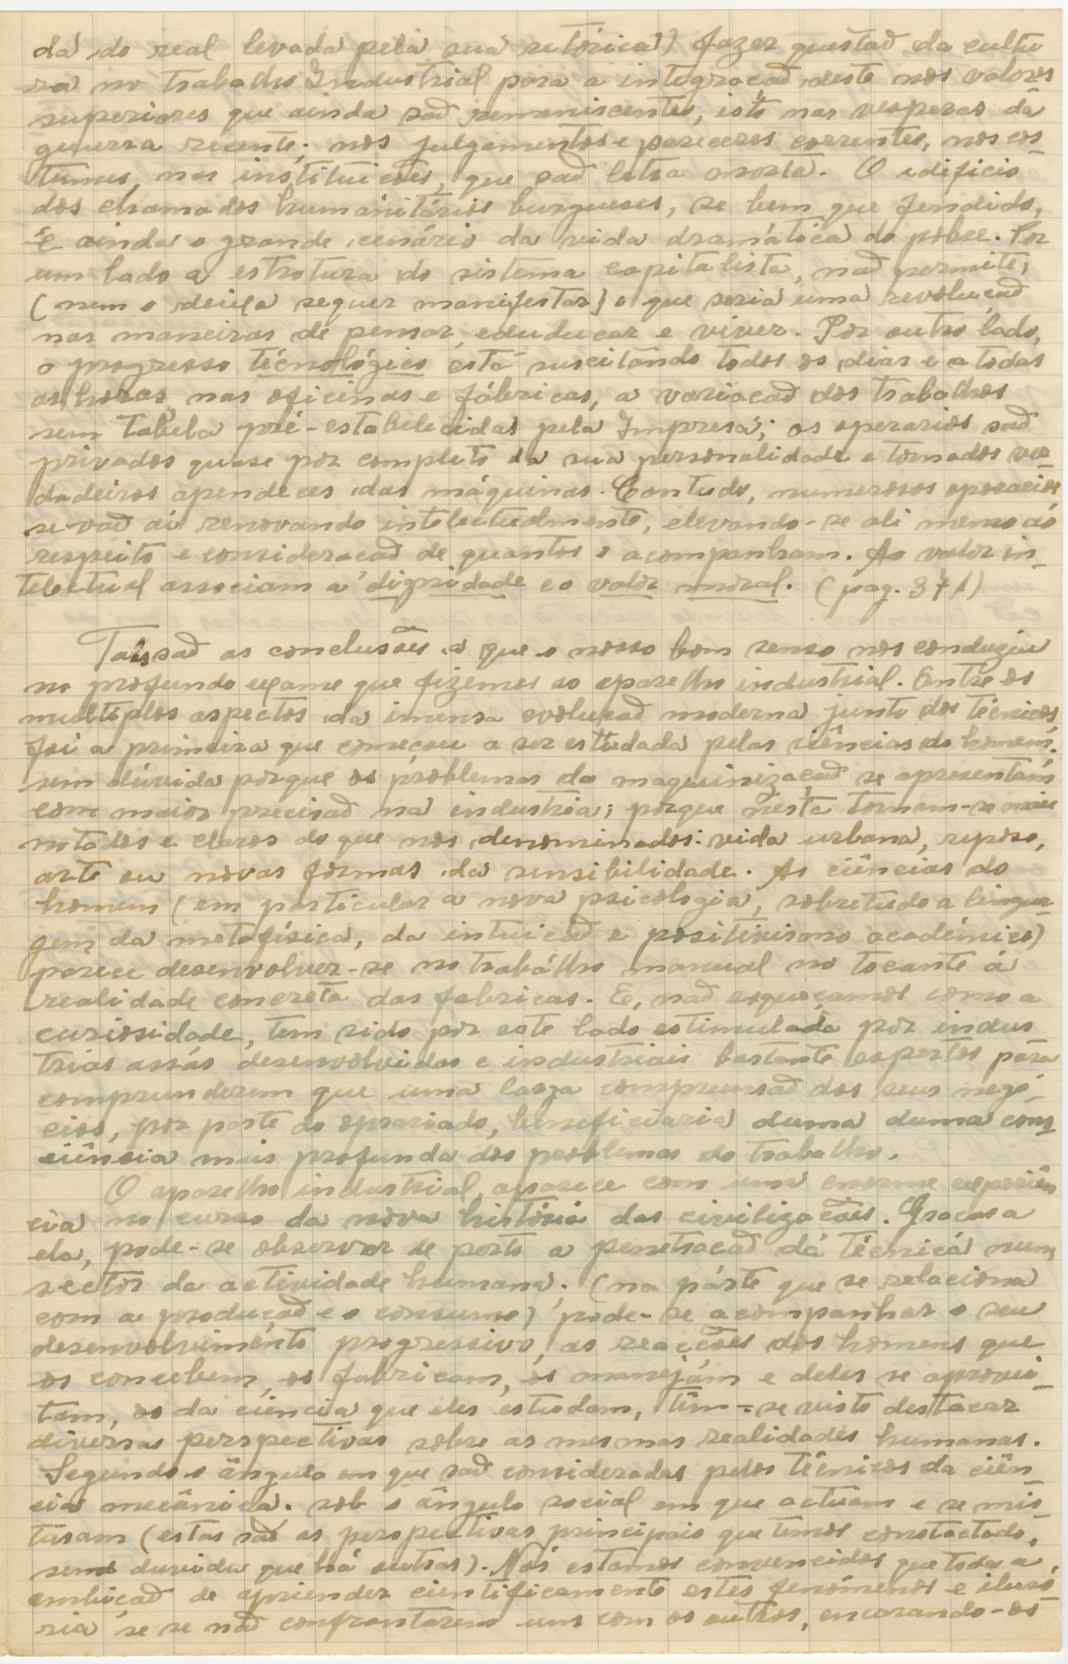 da do real levada pela sua retórica) fazer questaõ da cultu
ra no trabalho Industrial para a integracaõ deste nos valores
superiores que ainda saõ remaniscentes, isto nas vesperas da
guerra recente; nos julgamentos e pareceres correntes, nos cos
tumes, nas instituicoẽs, que saõ letra morta. O edificio
dos chamados humanitários burgueses, se bem que fendido,
É ainda o grande cenário da vida dramática do pobre. Por
um lado a estrutura do sistema capitalista, naõ permite,
(nem o deixa sequer manifestar) o que seria uma revolucaõ
nas maneiras de pensar, eduducar e viver. Por outro lado,
o progresso técnológico está suscitando todos os dias e a todas
as horas, nas oficinas e fábricas, a variacaõ dos trabalhos
sem tabela pré-estabelecidas pela Impresa; os operarios saõ
privados quase por completo da sua personalidade e tornados ver
dadeiros apendeces das máquinas. Contudo, numerosos operacios
se vaõ aí renovando intelectuelmente, elevando-se ali mesmo ao
respeito e consideracaõ de quantos o acompanham. Ao valor in-
telectual associam a dignidade e o valor moral. (pag. 371)
Tais saõ as conclusoẽs a que o nosso bom senso nos conduziu
no profundo exame que fizemos ao aparelho industrial. Entre os
multiplos aspectos da imensa evolucaõ moderna junto dos técnicos,
foi a primeira que comecou a ser estudada pelas ciências do homem.
sem dúvida porque os problemas da maquinizacaõ se apresentam
com maior precisaõ na industria; porque nesta tornam-se mais
notados e claros do que nos denominados: vida urbana, reposo,
arte ou novas formas da sensibilidade. As ciências do
homem (em particular a nova psicologia, sobretudo a lingua
gem da metafísica, da intuicaõ e positivismo académico)
parece desenvolver-se no trabálho manual no tocante á
realidade concreta das fabricas. E, naõ esquecamos como a
curiosidade, tem sido por este lado estimulada por indus
trias assás desenvolvidas e industriais bastante espertos para
comprenderem que uma larga compreensaõ dos seus negó-
cios, por parte do operariado, beneficiaria duma duma cons
ciência mais profunda dos problemas do trabalho.
O aparelho industrial, aparece com uma enorme experiên
cia no curso da nova história das civilizacoẽs. Gracas a
ela, pode-se observar de porto a penetracaõ da técnicá num
sector da actividade humana. (na párte que se relaciona
com a producaõ e o consumo) pode-se acompanhar o seu
desenvolvimento progressivo, as reaccoẽs dos homens que
os concebem, os fabricam, os manejám e deles se aprovei-
tam, os da ciência que eles estudam, têm-se visto destacar
diversas perspectivas sobre as mesmas realidades humanas.
Segundo o ângulo em que saõ consideradas pelos técnicos da ciên
cia mecânica. sob o ângulo social em que actuam e se mis
turam (estas saõ as perspectivas principais que temos constactado,
sem duvida que há outras). Nós estamos convencidos que toda a
ambicaõ de aprender cientificamente estes fenómenos e ilusó
ria se se naõ confrontarem uns com os outros, encarando-os